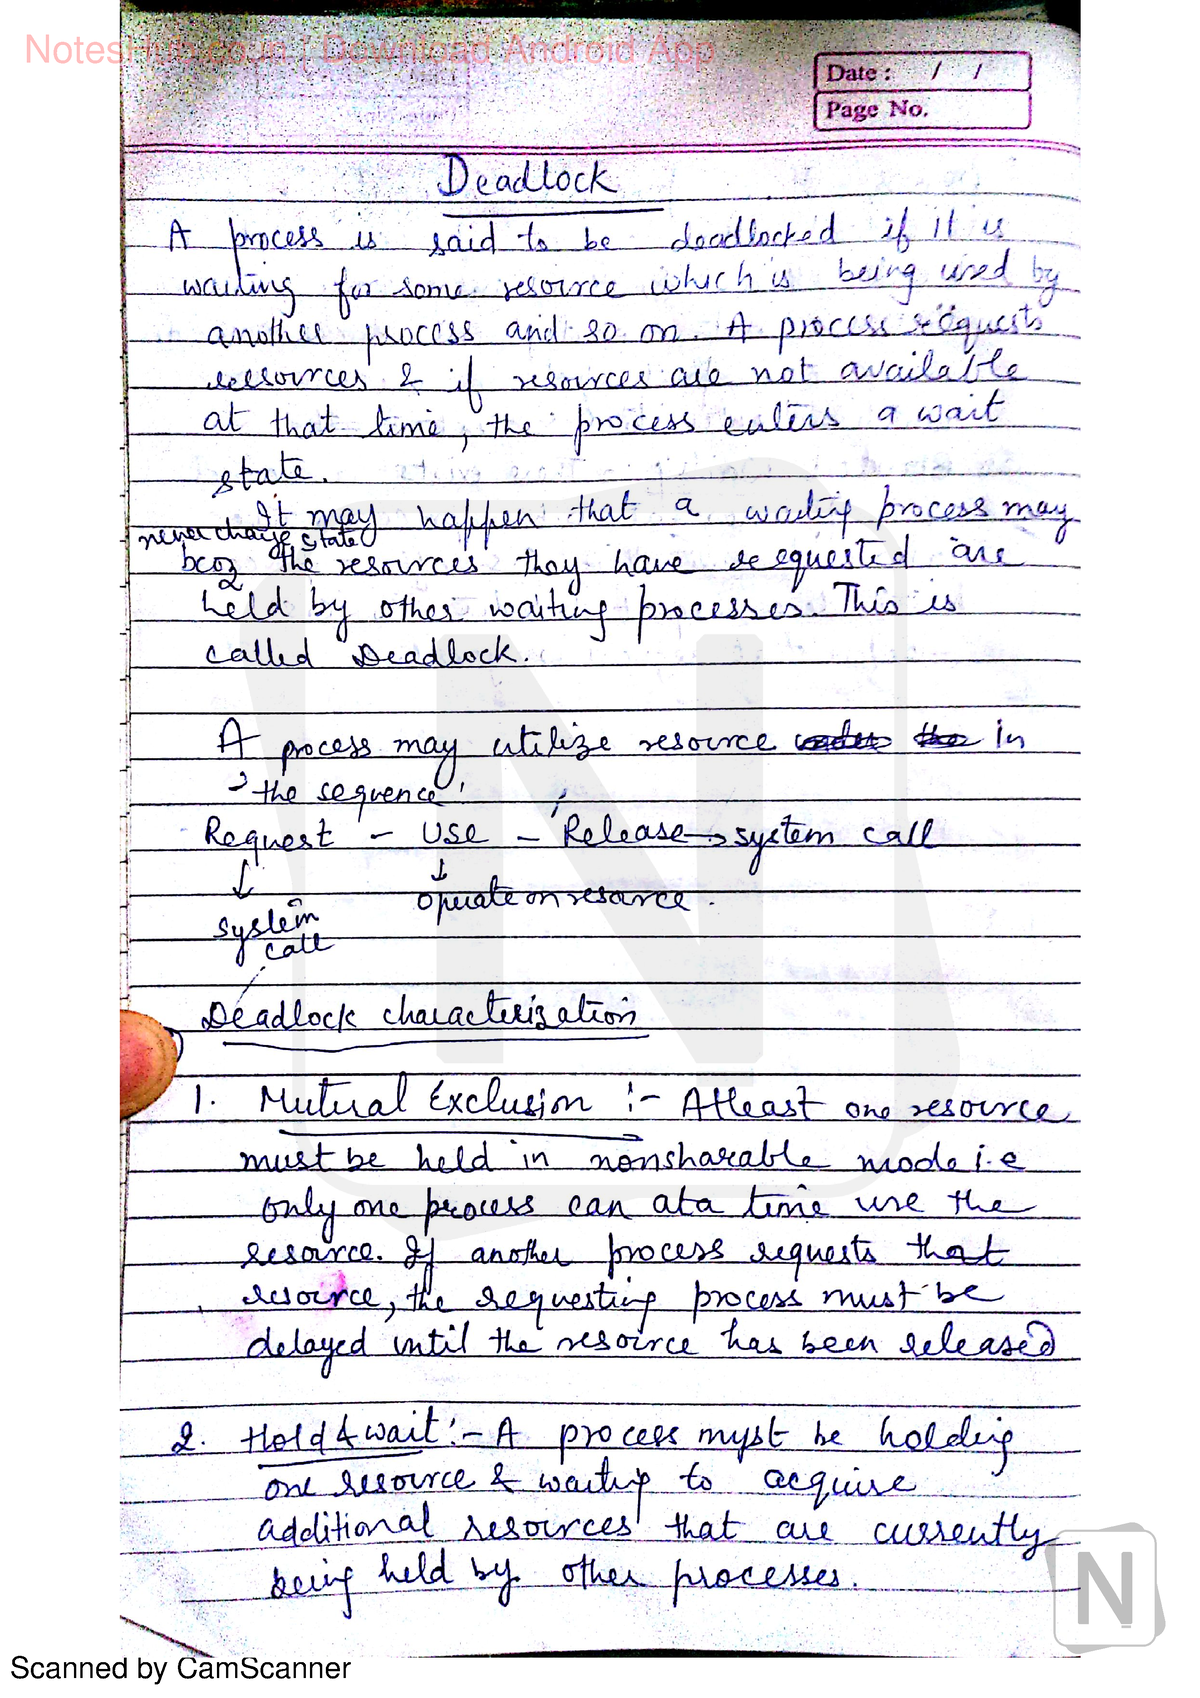 NotesHub.co.in | Download Android App
Date : / /
Page No.
Deadlock
A process is said to be deadlocked if it is
waiting for some resource which is being used by
another process and so on. A process requests
resources & if resources are not available
at that time, the process enters a wait
state.
It may happen that a waiting process may
never change state
bcoz the resources they have requested are
held by other waiting processes. This is
called Deadlock.
A process may utilize resource in
the sequence
Request - USE - Release → system call
↓ ↓
operate on resource.
system
call
Deadlock characterization
1. Mutual Exclusion :- Atleast one resource
must be held in nonsharable mode i.e
only one process can at a time use the
resource. If another process requests that
resource, the requesting process must be
delayed until the resource has been released
2. Hold & wait :- A process myst be holding
one resource & waiting to acquire
additional resources that are currently
being held by other processes.
N
Scanned by CamScanner